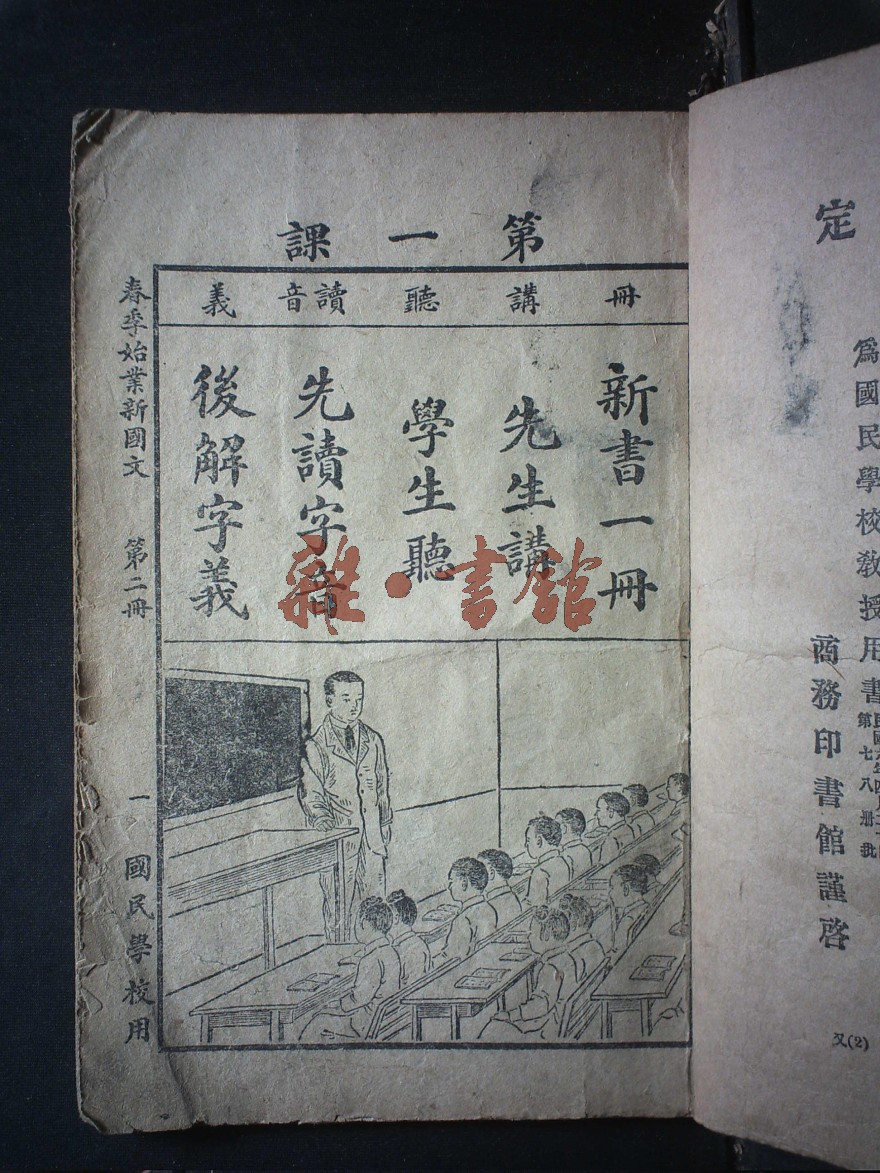 定
爲國民學校敎授用書
商務印書館謹啓
又(2)
第一課
冊 講 聽 讀音 義
新書一冊
先生講
學生聽
先讀字音
後解字義
春季始業新國文 第二冊 一 國民學校用
雜·書館